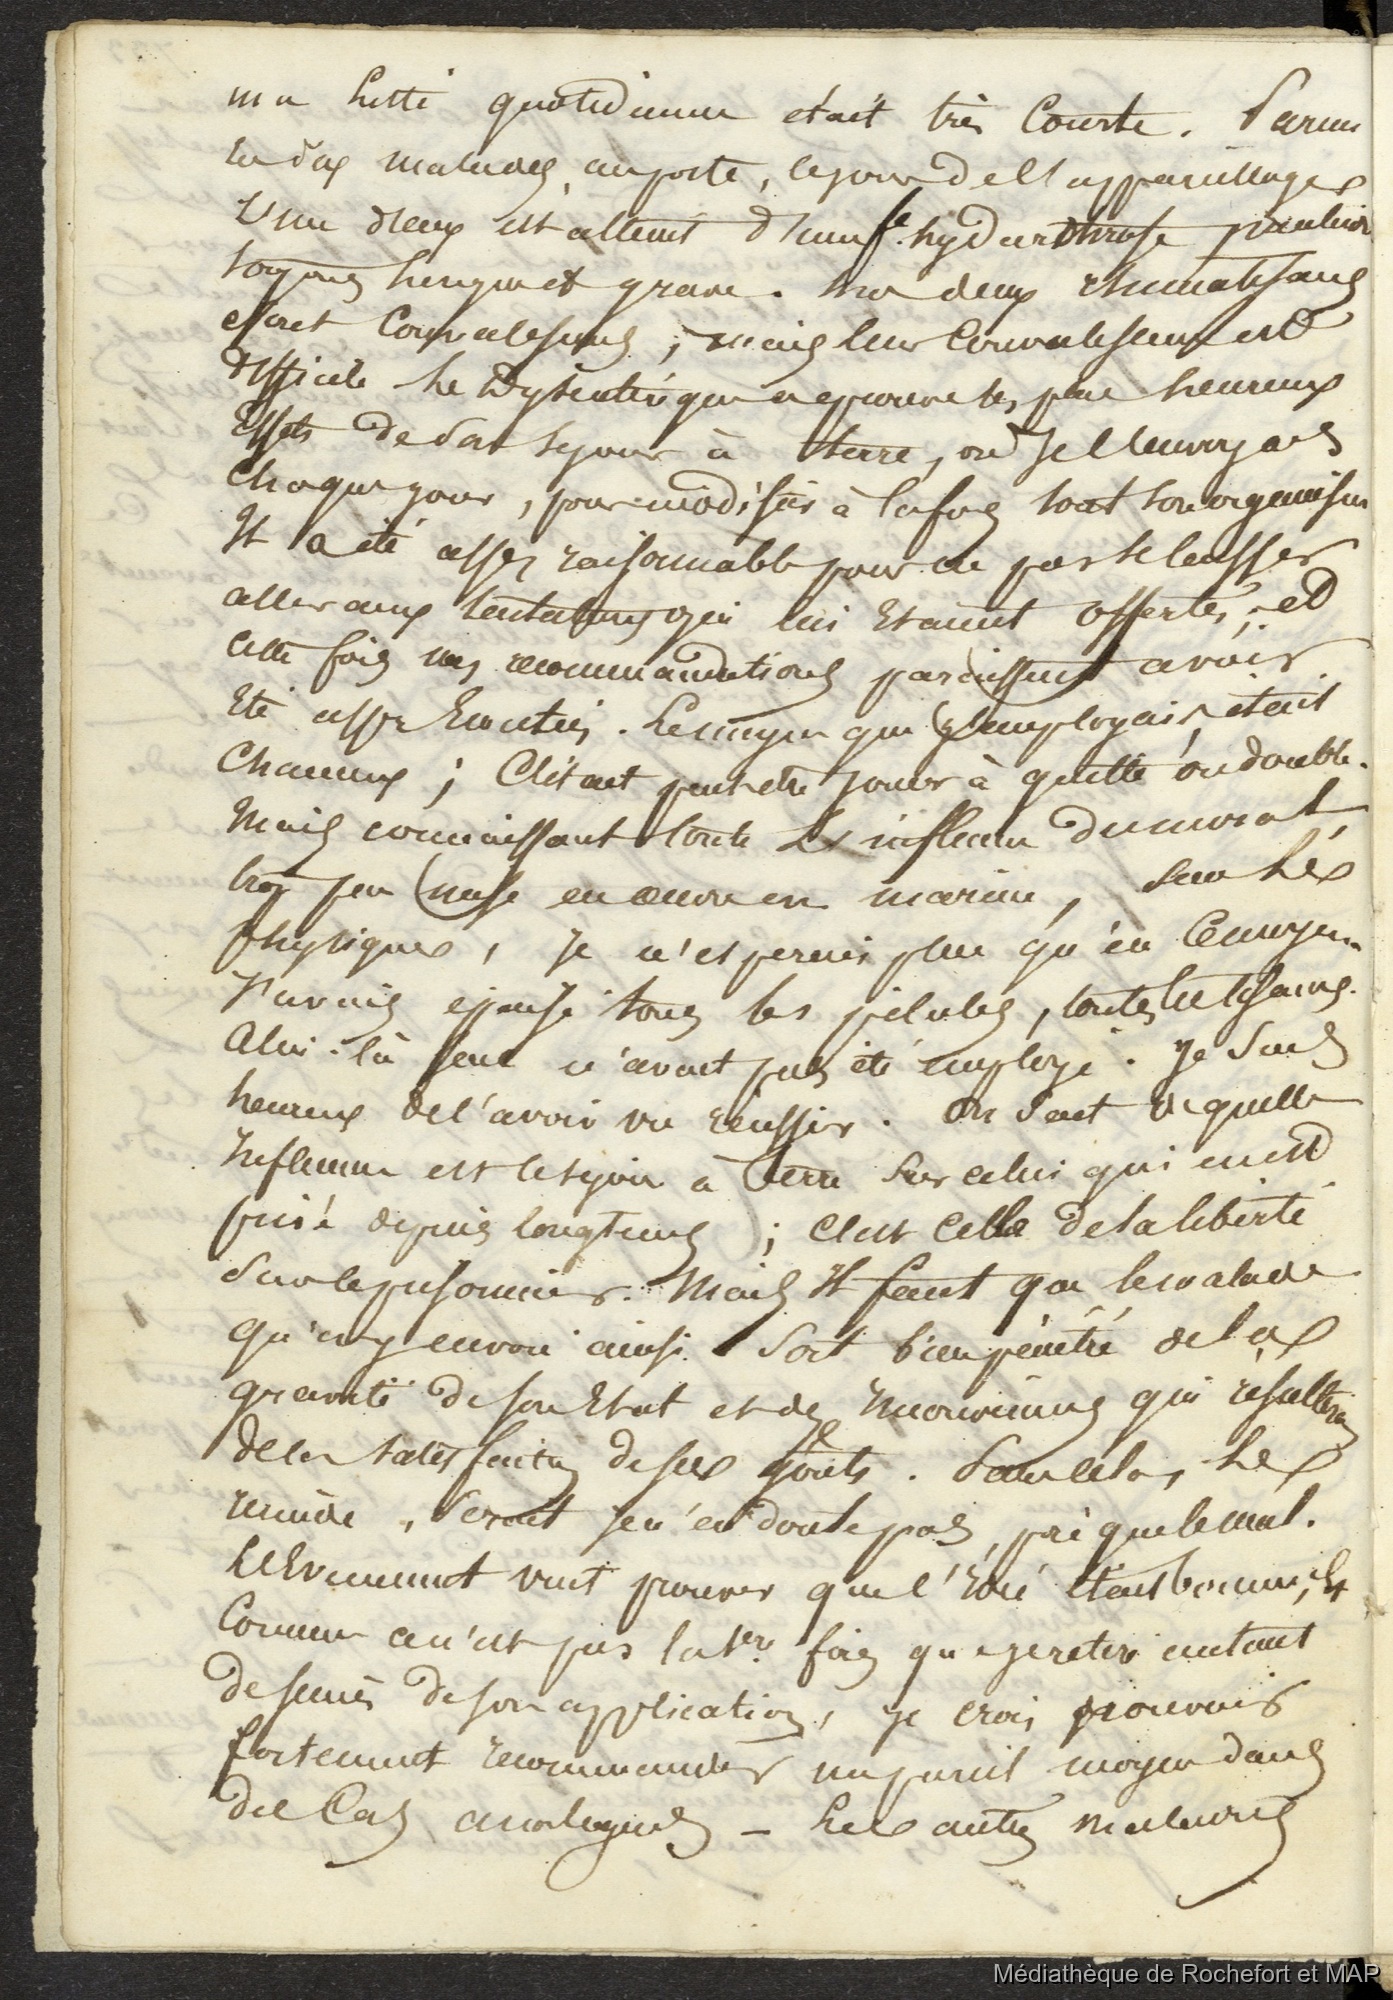 ma liste quotidienne était très Courte. Parmi
les dix malades au poste, le jour de l'appareillage
l'un d'eux est atteint d'une hydarthrose
toujours longue et grave. Mes deux rhumatisans
sont Convalescens ; mais leur Convalescence est
difficile le dysentérique a eprouvé les plus heureux
Effets de son sejour à terre, où Je l'envoyais
Chaque jour, pour modifier à la fois tout son organisme
Il a été assez raisonnable pour ne pas se laisser
aller aux tentations qui lui Etaient offertes ; et
cette fois mes recommandations paraissent avoir
Eté assez Ecoutées. Le moyen que j'employais, était
Chanceux ; C'était peut etre jouer à quitte ou double.
Mais connaissant toute L'influence du moral,
trop peu mise en œuvre en marine, sur Le
physique, Je n'esperais plus qu'en Ce moyen.
J'avais epuisé tous les pilules, toutes les tisanes.
Celui-là seul n'avait pas été employé. Je suis
heureux de l'avoir vu réussir. On sait de quelle
Influence est le sejour à Terre sur celui qui en est
privé depuis longtems ; C'est Celle de la liberté
Sur le prisonnier. Mais Il faut que le malade
qu'on y envoie ainsi Soit bien pénétré de la
gravité de son Etat et des inconvéniens qui résulteraient
de la satisfaction de ses goûts. Sans cela, Le
remède, serait je n'en doute pas, pire que le mal.
L'Evenement vint prouver que l'Idée était bonne ; Et
Comme ce n'est pas la 1ere fois que je retire autant
de succès de son application, je crois pouvoir
fortement recommander un pareil moyen dans
des Cas analogues – Les autres malades